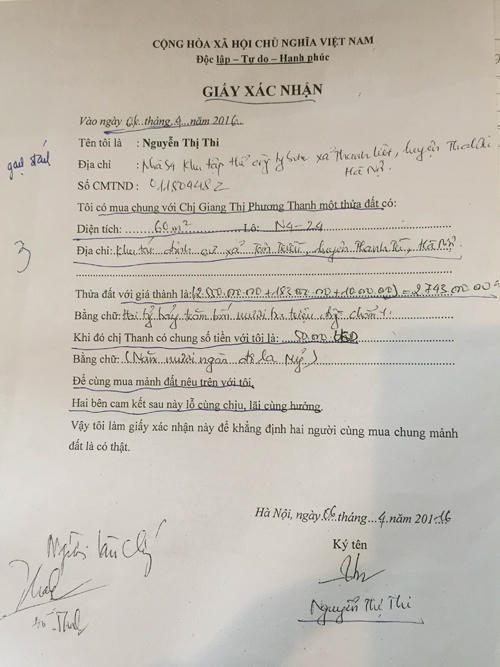 CỘNG HÒA XÃ HỘI CHỦ NGHĨA VIỆT NAM
Độc lập – Tự do – Hạnh phúc
GIẤY XÁC NHẬN
Vào ngày 06 tháng 4 năm 2016
Tên tôi là : Nguyễn Thị Thi
Địa chỉ : khu tập thể xã Thanh Liệt, huyện
Hà Nội
Số CMTND : 011804482
Tôi có mua chung với Chị Giang Thị Phương Thanh một thửa đất có:
Diện tích: 60 m² Lô: N4-24
Địa chỉ: Khu tái định cư xã Tân Triều, huyện Thanh Trì, Hà Nội
3
Thửa đất với giá thành là: (2.550.000.000 + 183.000.000 + 10.000.000) = 2.743.000.000
Bằng chữ: Hai tỷ bảy trăm bốn mươi ba triệu đồng chẵn
Khi đó chị Thanh có chung số tiền với tôi là: 50.000 USD
Bằng chữ: (Năm mươi ngàn đô la Mỹ)
Để cùng mua mảnh đất nêu trên với tôi.
Hai bên cam kết sau này lỗ cùng chịu, lãi cùng hưởng.
Vậy tôi làm giấy xác nhận này để khẳng định hai người cùng mua chung mảnh
đất là có thật.
Hà Nội, ngày 06 tháng 4 năm 2016
Ký tên
Người làm chứng
Nguyễn Thị Thi